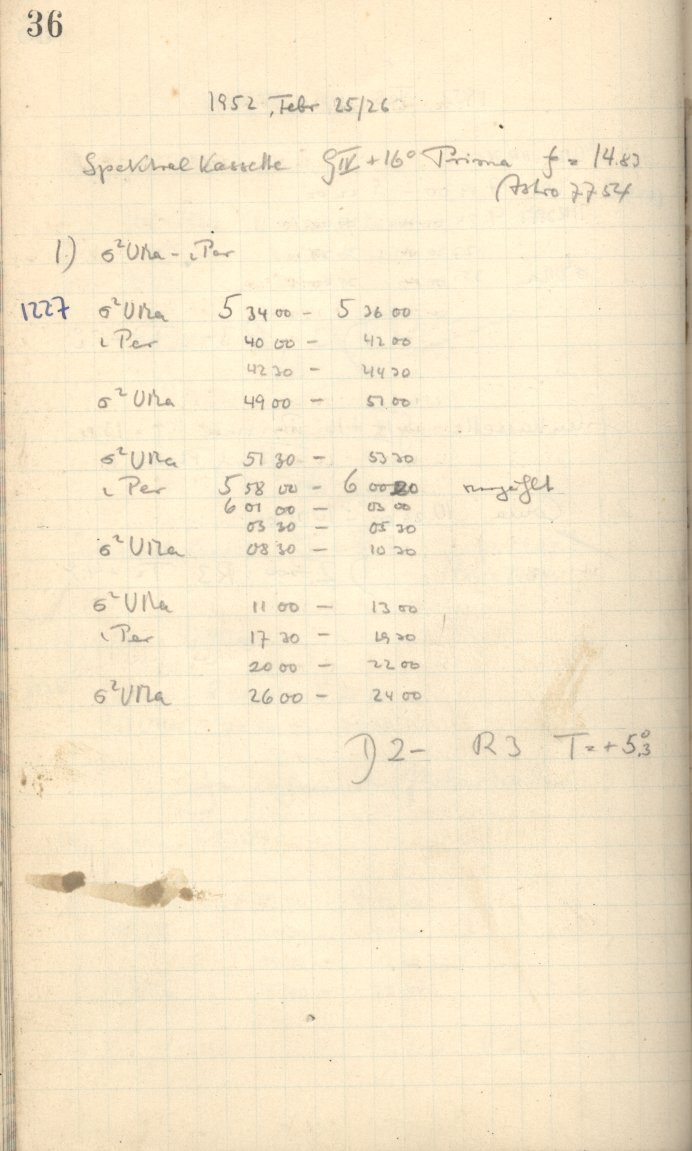 36
1952, Febr 25/26
Spektral Kassette GIV +16° Prisma f = 14.83
(Astro 7754
1.) σ²UMa - ι Per
1227 σ²UMa 5 34 00 - 5 36 00
ι Per 40 00 - 42 00
42 30 - 44 30
σ²UMa 49 00 - 51 00
σ²UMa 51 30 - 53 30
ι Per 5 58 00 - 6 00
6 01 00 - 03 00
03 30 - 05 30
σ²UMa 08 30 - 10 30
σ²UMa 11 00 - 13 00
ι Per 17 30 - 19 30
20 00 - 22 00
σ²UMa 26 00 - 24 00
D 2- R3 T = +5.°3